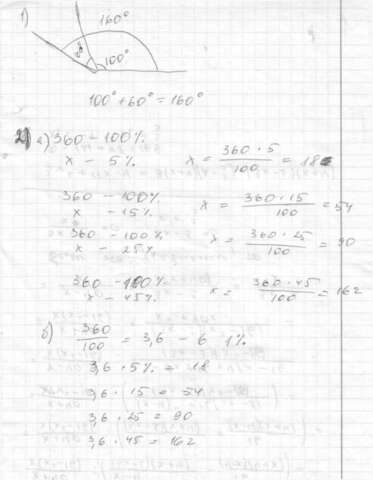 1)
160°
60°
100°
100° + 60° = 160°
2) а) 360 – 100%
x – 5% x = 360 · 5 / 100 = 18
360 – 100%
x – 15% x = 360 · 15 / 100 = 54
360 – 100%
x – 25% x = 360 · 25 / 100 = 90
360 – 100%
x – 45% x = 360 · 45 / 100 = 162
б) 360 / 100 = 3,6 – б 1%
3,6 · 5% = 18
3,6 · 15 = 54
3,6 · 25 = 90
3,6 · 45 = 162